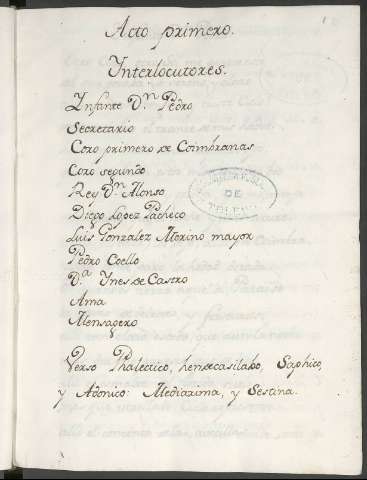 Acto primero.
Interlocutores.
Infante D.ⁿ Pedro
Secretario
Coro primero de Coimbranas
Coro segundo
Rey D.ⁿ Alonso
DE
Diego Lopez Pacheco
Luis Gonzalez Merino mayor
Pedro Coello
D.ª Ynes de Castro
Ama
Mensagero
Verso Phaleucico, hendecasilabo, Saphico,
y Adonico: Mediarima, y Sestina.